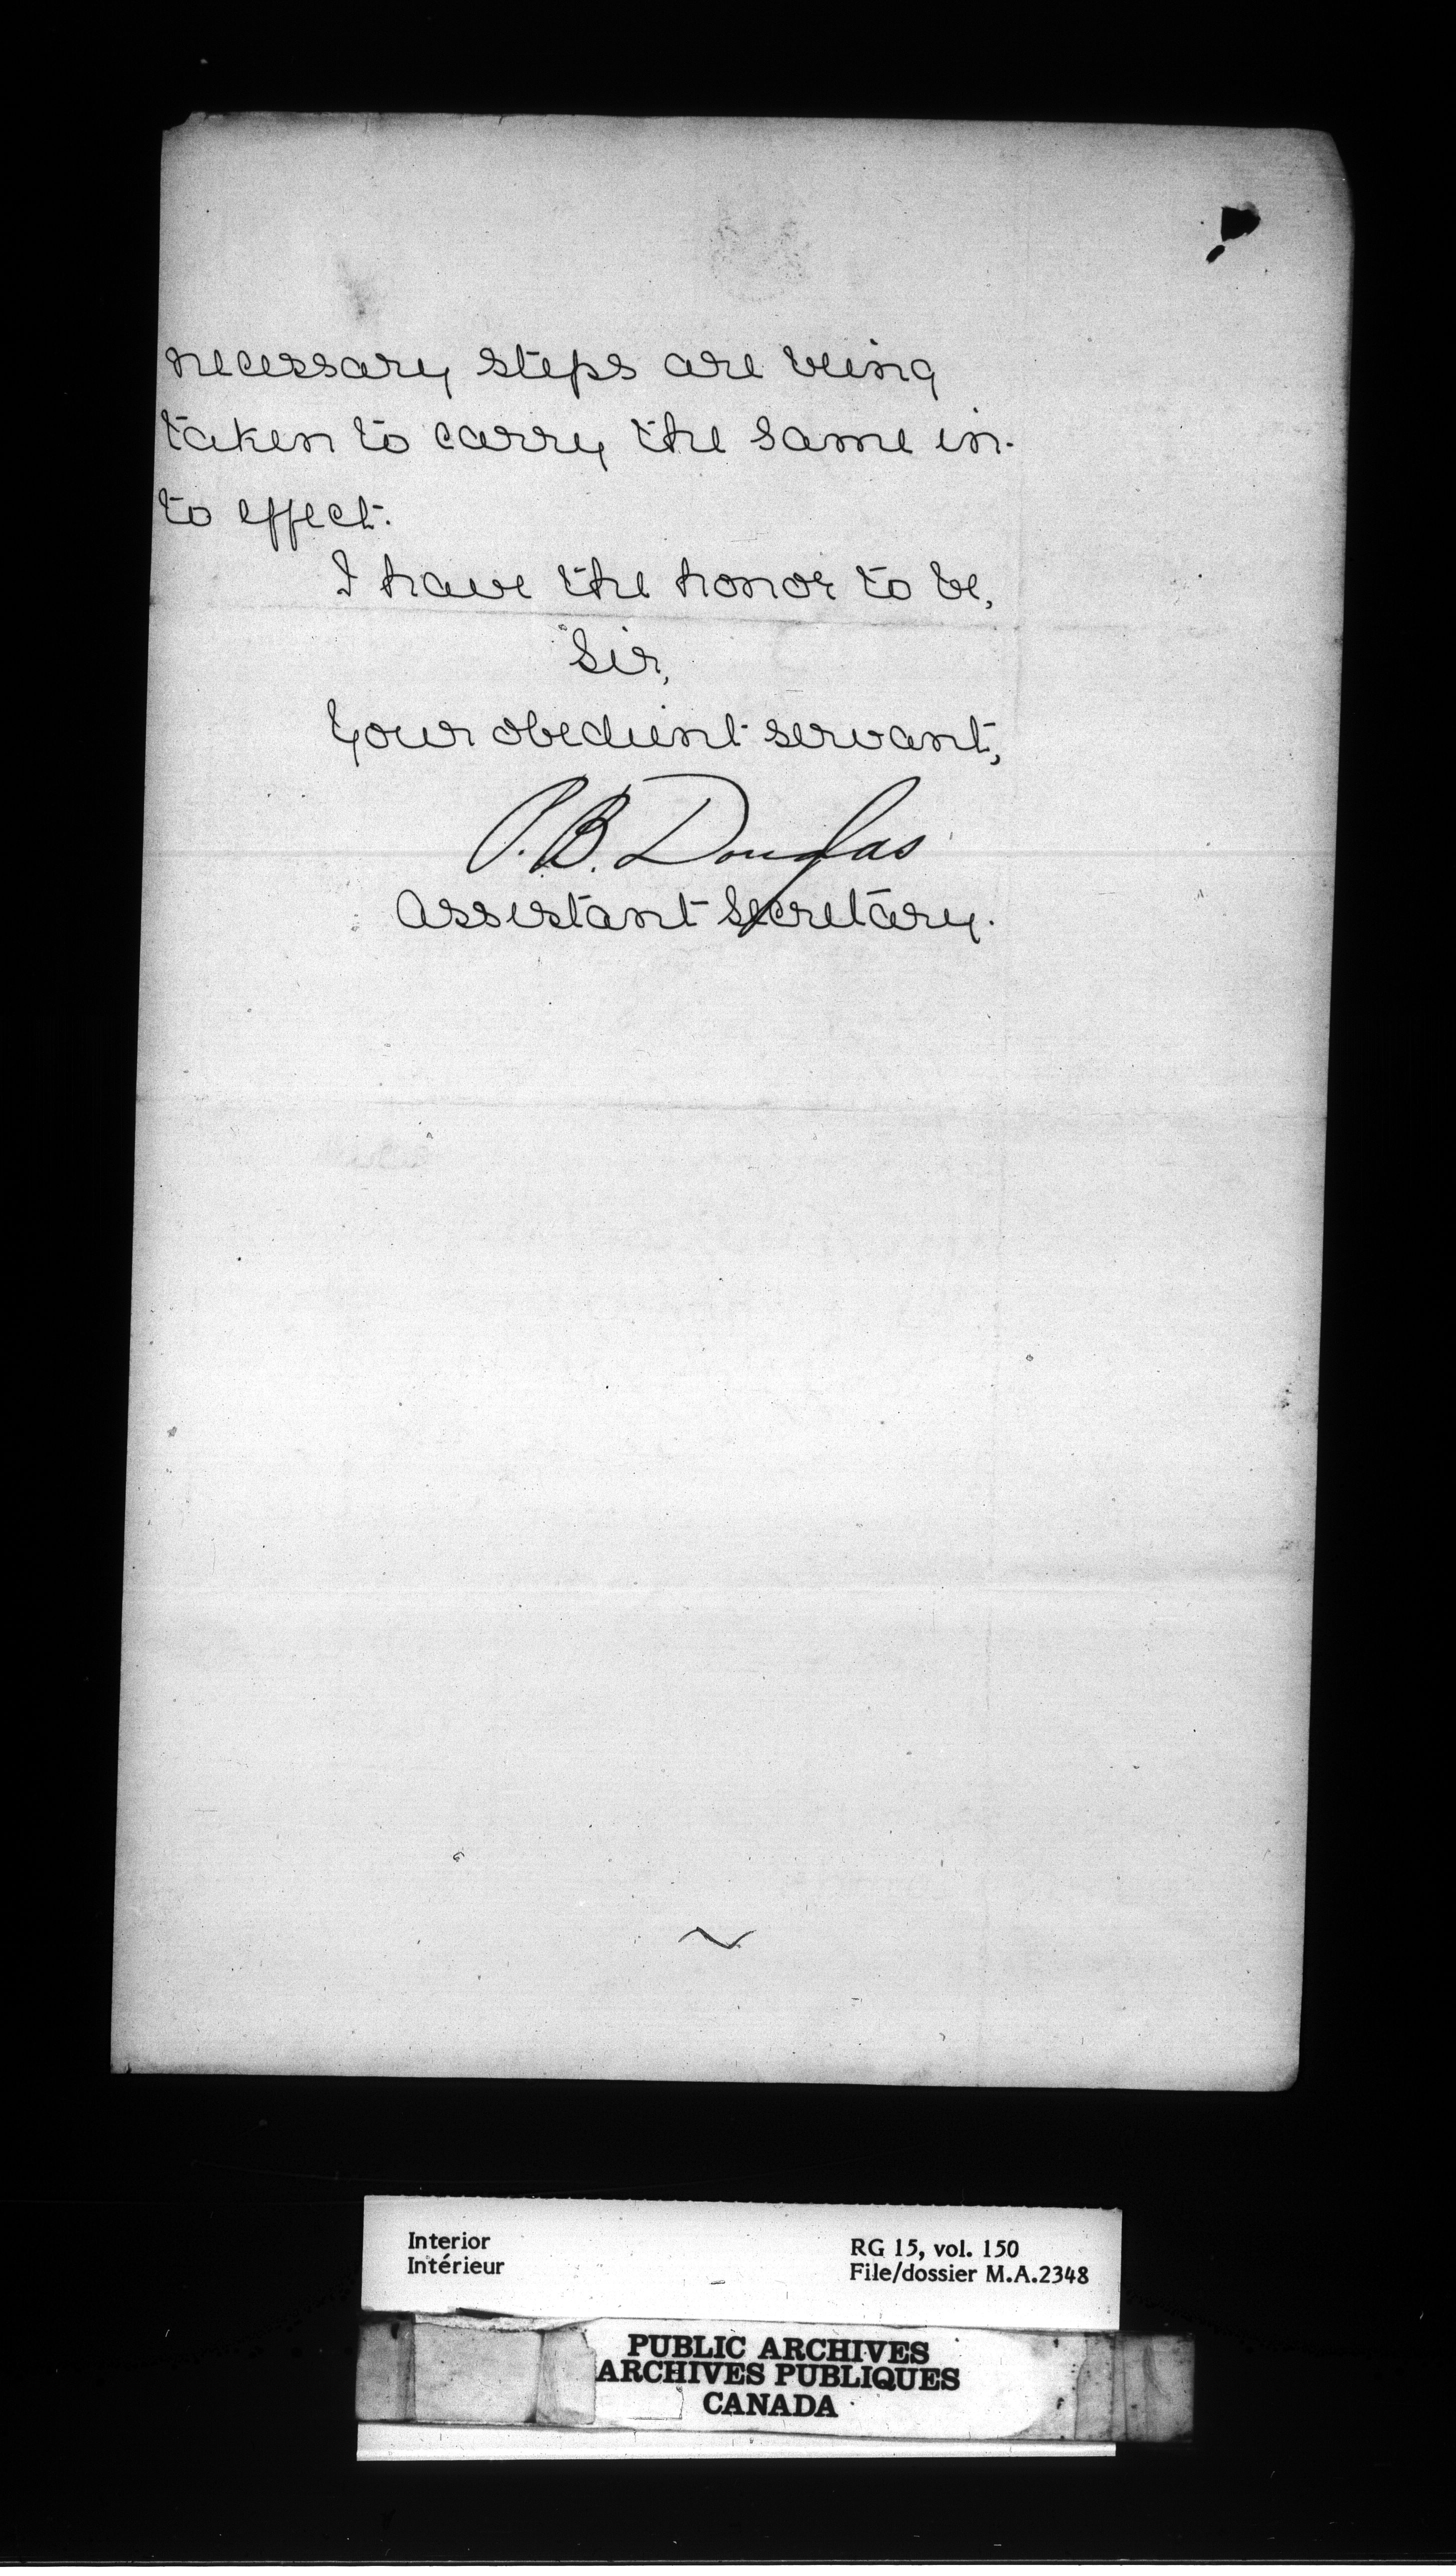 necessary steps are being
taken to carry the same in-
to effect.
I have the honor to be,
Sir,
Your obedient servant,
P. B. Douglas
Assistant Secretary.
Interior
Intérieur
RG 15, vol. 150
File/dossier M.A.2348
PUBLIC ARCHIVES
ARCHIVES PUBLIQUES
CANADA